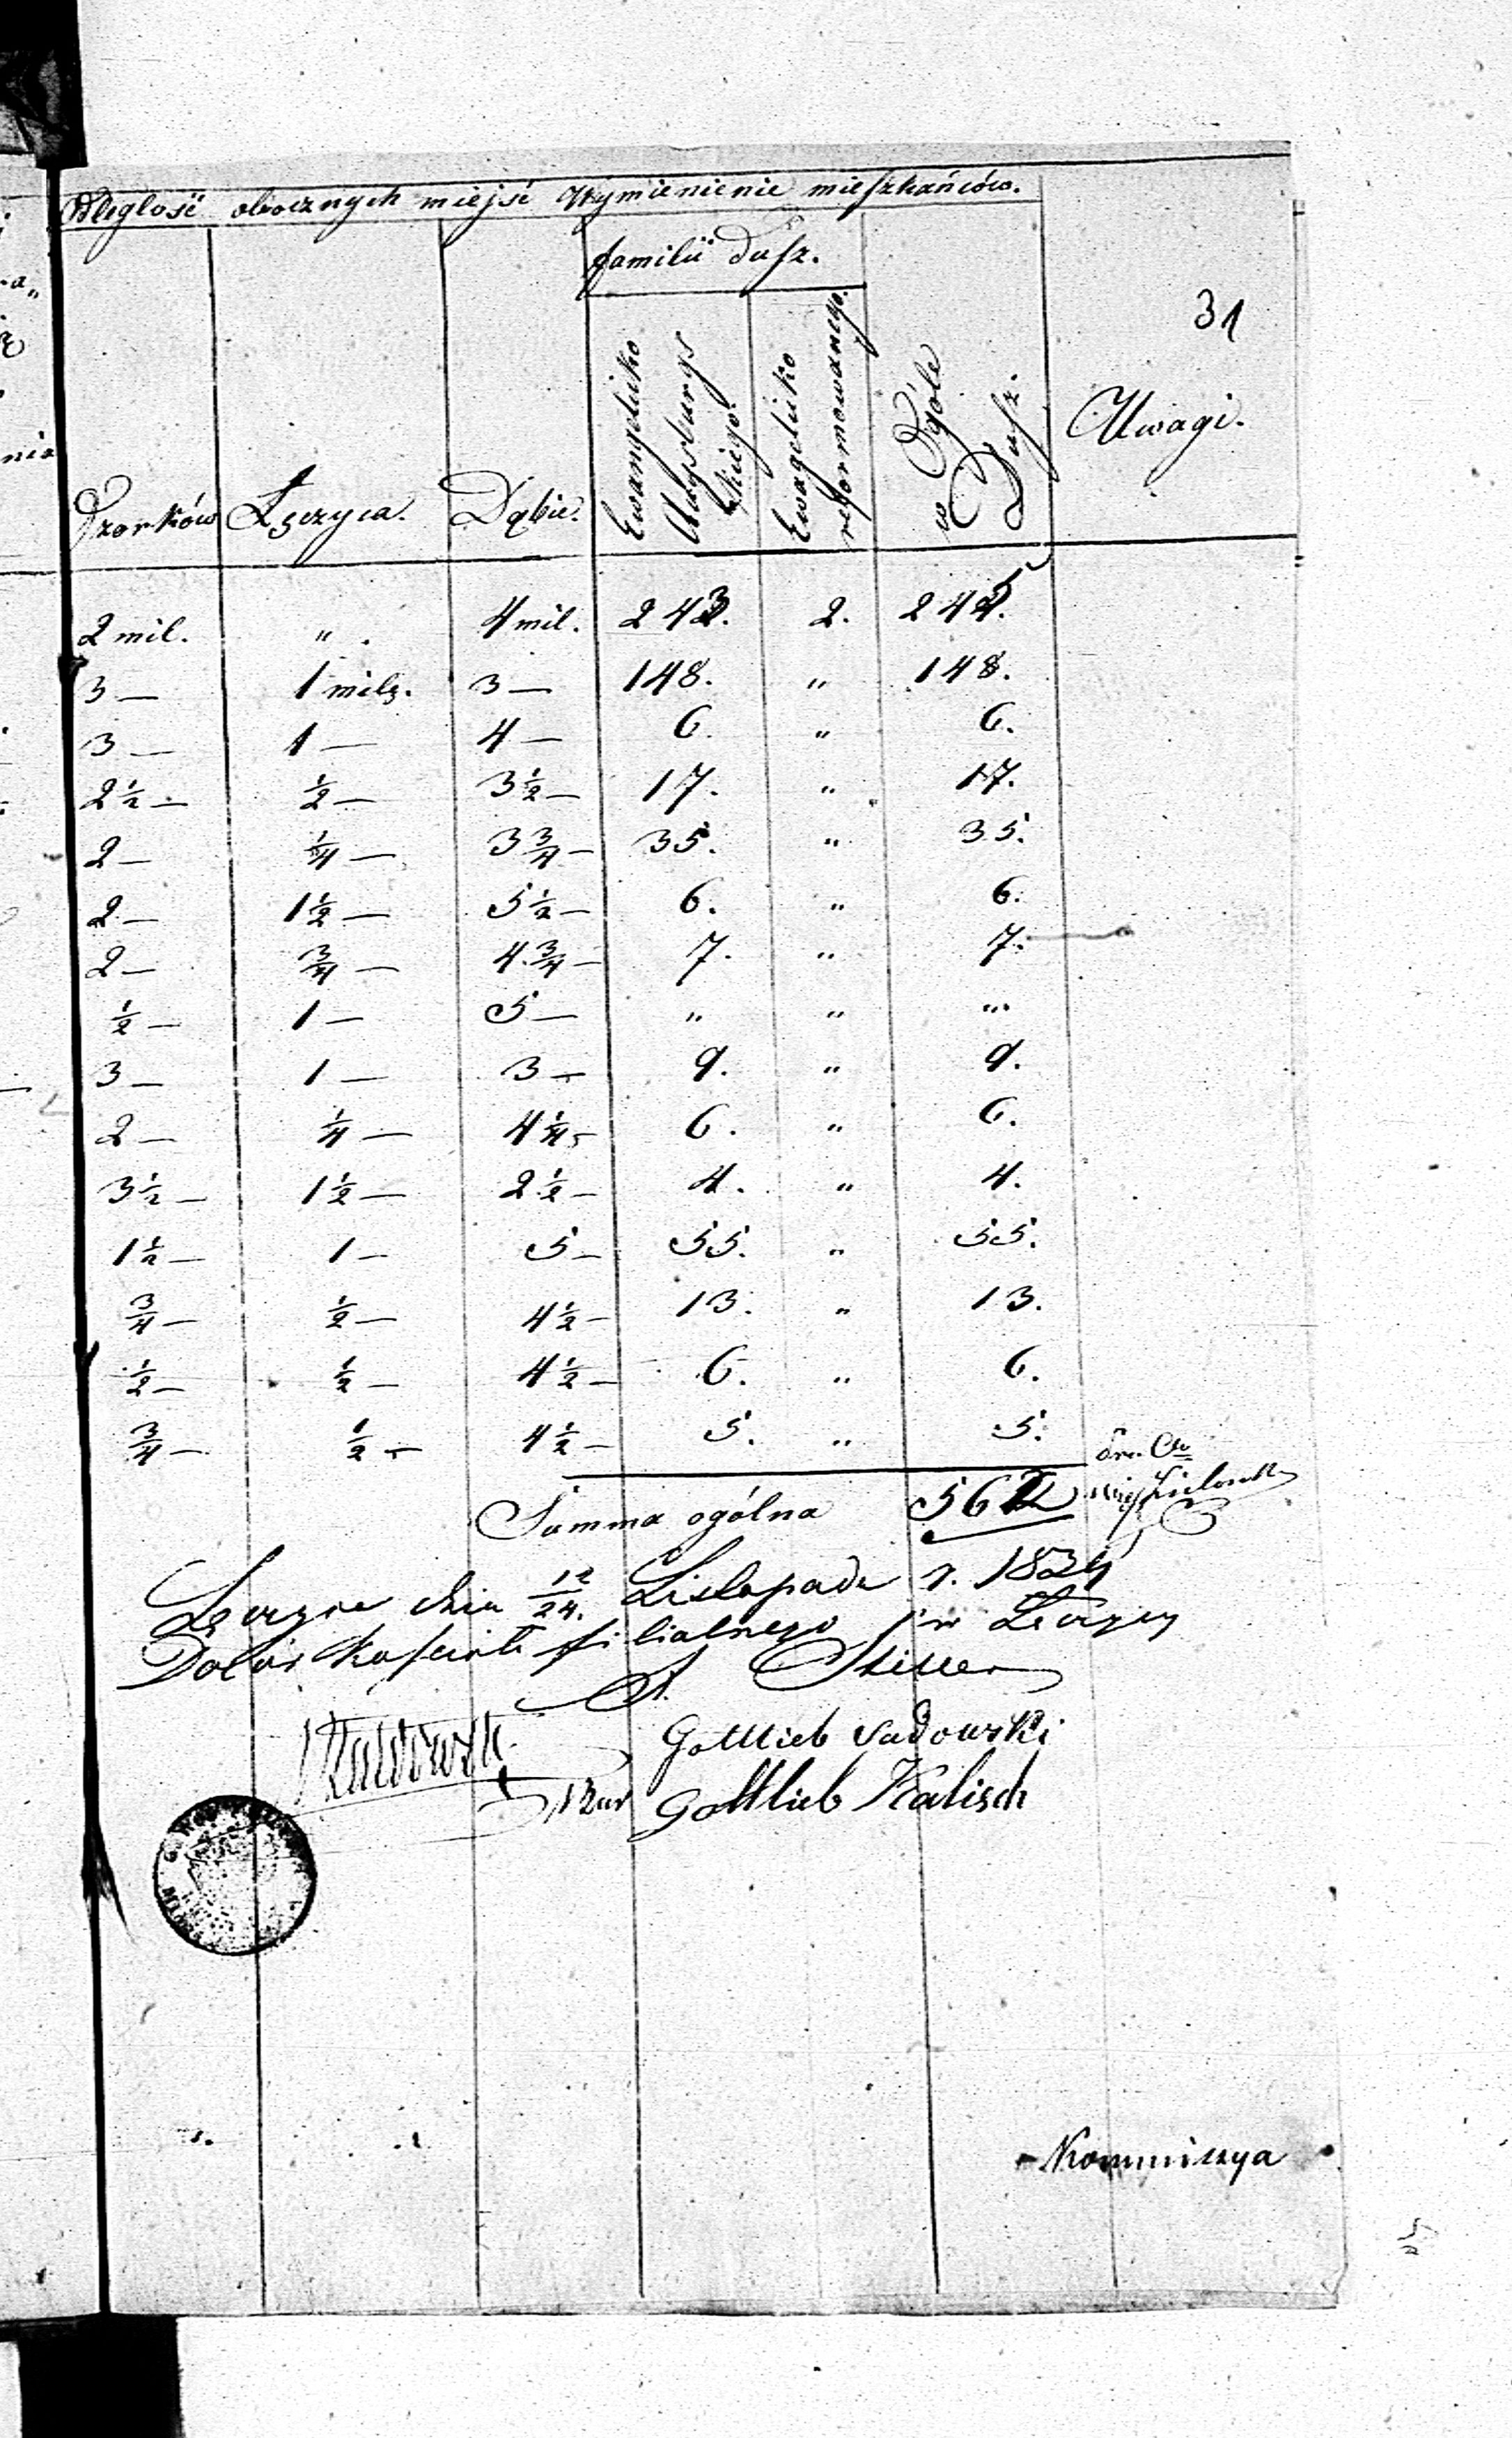 Odległość obocznych miejsc Wymienienie mieszkańców.
familii dusz.
31
Ozorków Łęczyca. Dąbie. Ewangelicko Augsburgskiego. Ewagelicko reformowanego. w Ogóle Dusz. Uwagi.
2 mil. " . 4 mil. 243. 2. 245.
3 — 1 milę. 3 — 148. " 148.
3 — 1 — 4 — 6. " 6.
2 ½ — ½ — 3 ½ — 17. " 17.
2 — ¼ — 3 ¾ — 35. " 35.
2 — 1 ½ — 5 ½ — 6. " 6.
2 — ¾ — 4 ¾ — 7. " 7.
½ — 1 — 5 — " " "
3 — 1 — 3 — 9. " 9.
2 — ¼ — 4 ¼ — 6. " 6.
3 ½ — 1 ½ — 2 ½ — 4. " 4.
1 ½ — 1 — 5 — 55. " 55.
¾ — ½ — 4 ½ — 13. " 13.
½ — ½ — 4 ½ — 6. " 6.
¾ — ½ — 4 ½ — 5. " 5.
Summa ogólna 562
Łęczyca dnia 12/24. Listopada r. 1834
Dozór kościoła filialnego w Łęczycy
Gottlieb Sadowski
Gottlieb Kalisch
Kommissya